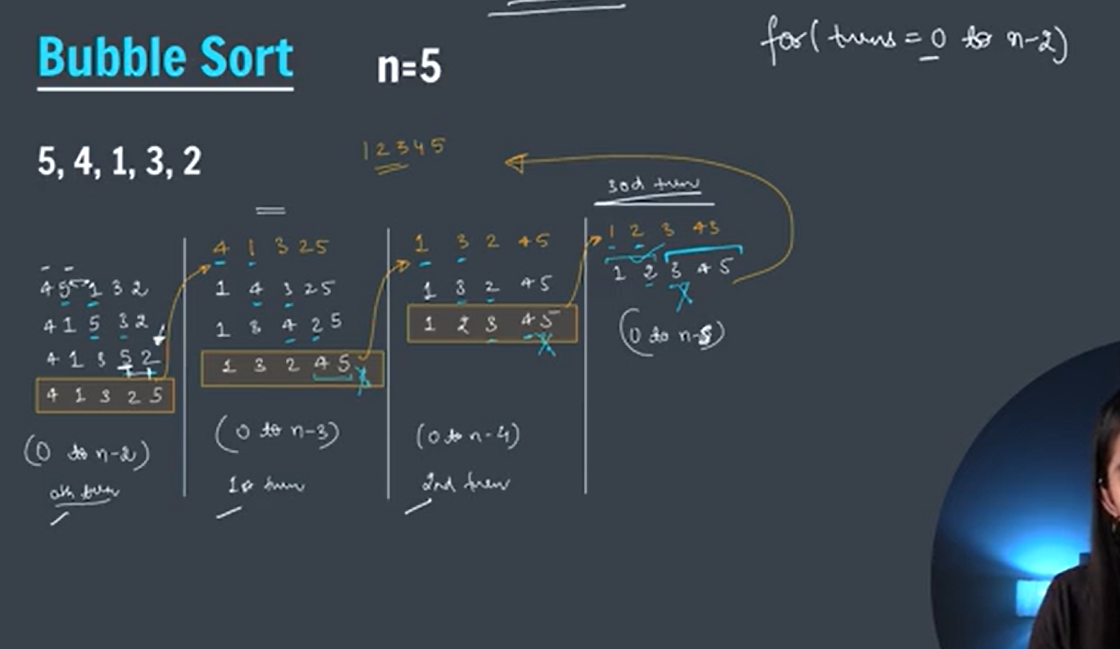 Bubble Sort
n=5
for( turns = 0 to n-2)
5, 4, 1, 3, 2
1 2 3 4 5
4 5 1 3 2
4 1 5 3 2
4 1 3 5 2
4 1 3 2 5
(0 to n-2)
0th turn
4 1 3 2 5
1 4 3 2 5
1 3 4 2 5
1 3 2 4 5
(0 to n-3)
1st turn
1 3 2 4 5
1 3 2 4 5
1 2 3 4 5
(0 to n-4)
2nd turn
3rd turn
1 2 3 4 5
1 2 3 4 5
(0 to n-5)